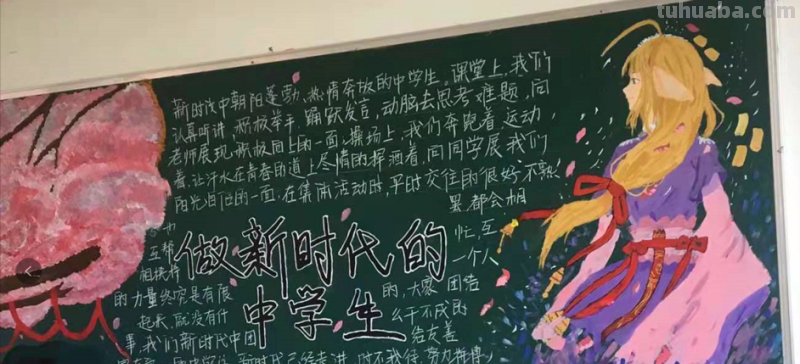 tuhuaba.com
新时代中朝阳蓬勃、热情奔放的中学生。课堂上,我们
认真听讲,积极举手,踊跃发言,动脑去思考难题,向
老师展现积极向上的一面,操场上,我们奔跑着,运动
着,让汗水在青春的道上尽情的挥洒着,向同学展我们
阳光自信的一面,在集体活动时,平时交往的很好,不熟
都会相
互帮 忙,互
相扶持 一个人
做新时代的
中学生
的力量终究是有限 的,大家 团结
起来,就没有什 么干不成的
事,我们新时代中国 结友善